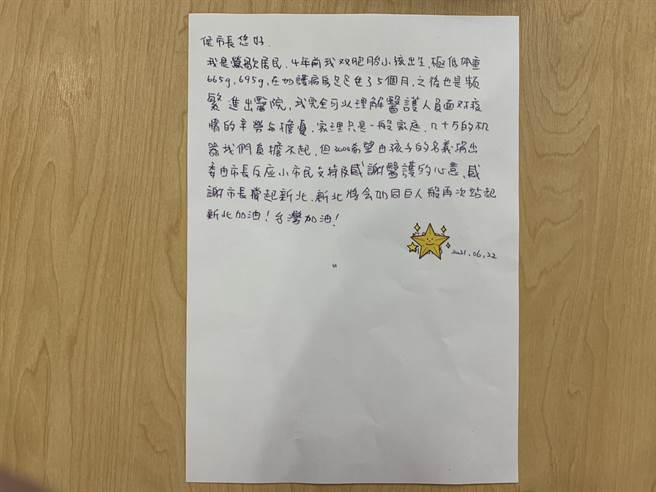 侯市長您好.
我是鶯歌居民,4年前我双胞胎小孩出生,極低体重
665g,695g,在加護病房足足包了5個月,之後也是頻
繁進出醫院,我完全可以理解醫護人員面对疫
情的辛勞与擔憂,家理只是一般家庭,几十万的机
器我們負擔不起,但3000希望由孩子的名義捐出
委由市長反应小市民支持及感謝醫護的心意,感
謝市長撐起新北,新北將会如同巨人般再次站起
新北加油!台灣加油!
2021.06.22